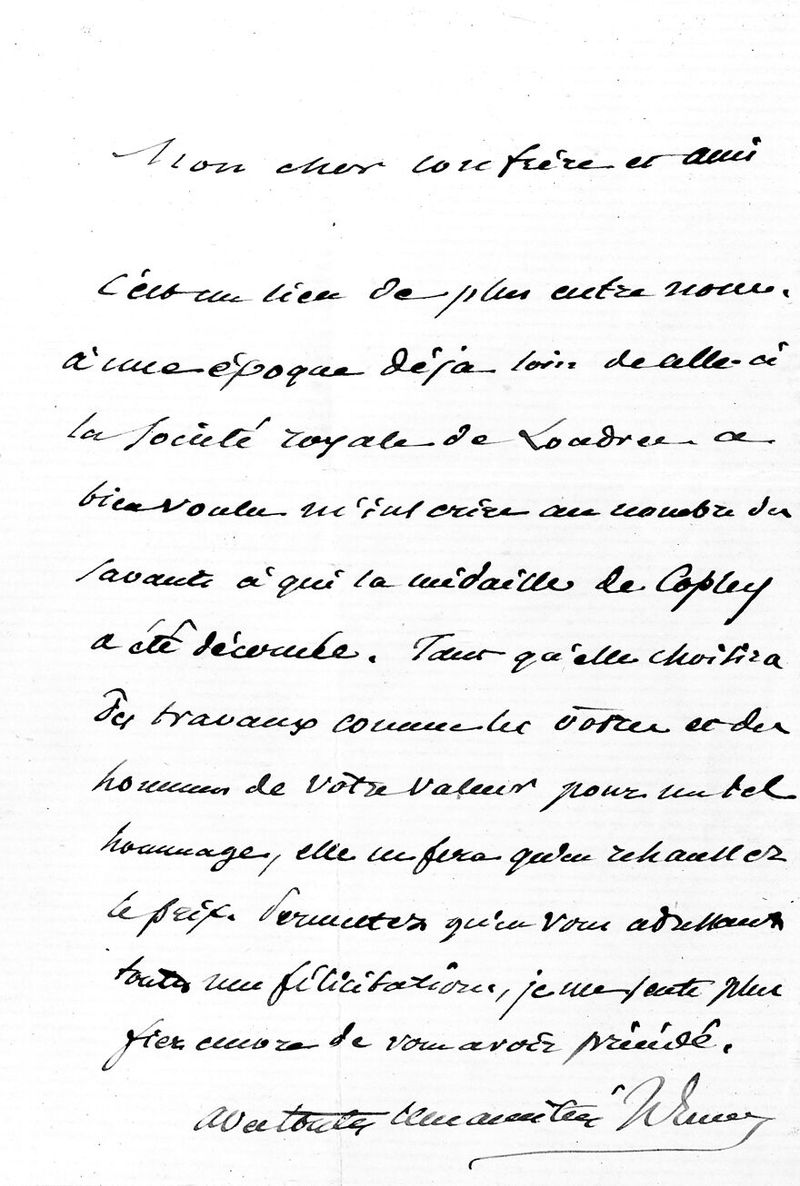 Mon cher confrère et ami
C'est un lien de plus entre nous.
à une époque déjà loin de celle-ci
la société royale de Londres a
bien voulu m'inscrire au nombre des
savants à qui la médaille de Copley
a été décernée. Tant qu'elle choisira
des travaux comme les vôtres et des
hommes de votre valeur pour un tel
hommage, elle ne fera qu'en rehausser
le prix. Permettez qu'en vous adressant
toutes mes félicitations, je me sente plus
fier encore de vous avoir précédé.
avec toutes mes amitiés